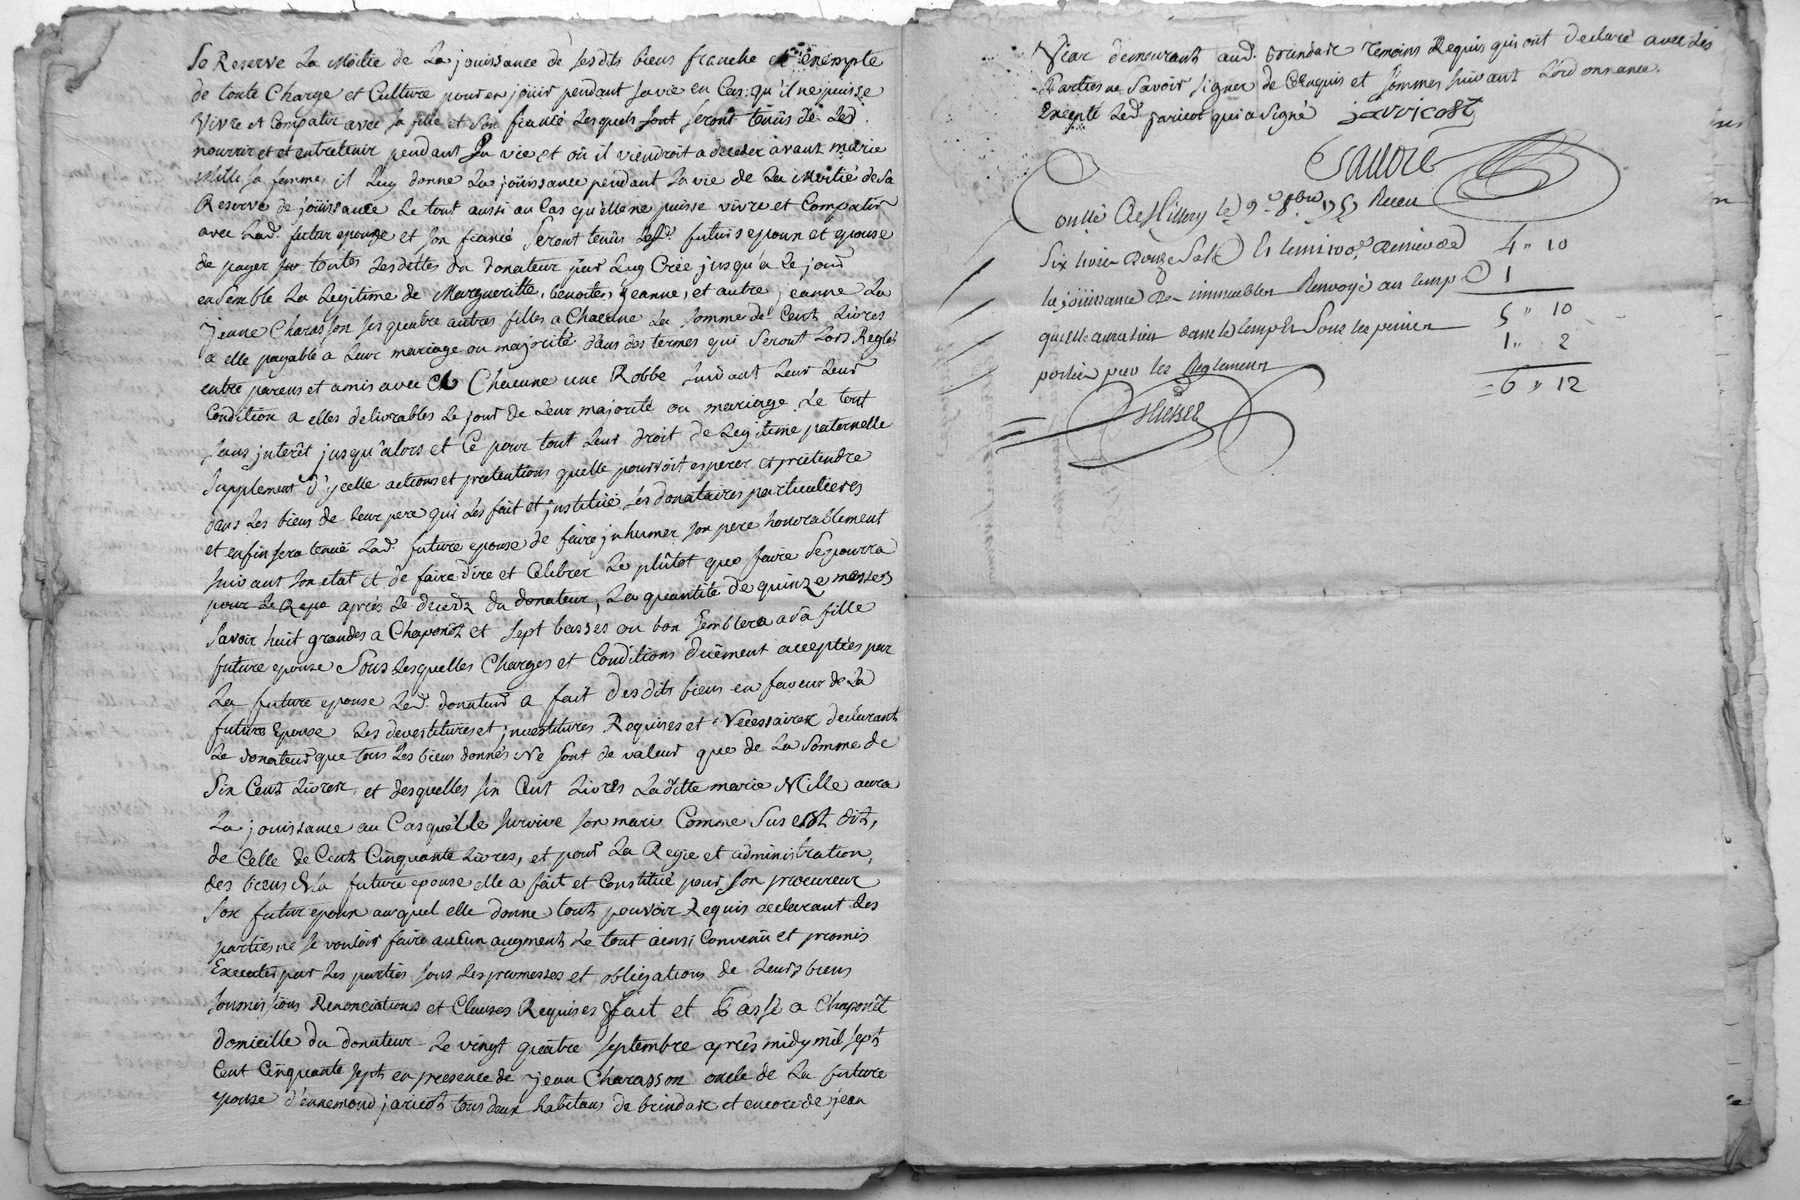 Se Reserve La Moitié de La jouissance de sesdits biens franche et exempte
de toute Charge et Culture pour en jouir pendant sa vie en Cas qu'il ne puisse
Vivre et Compatir avec sa fille et son fiancé Lesquels sont seront tenûs de Led.
nourrir et et entretenir pendant sa vie et où il viendroit a deceder avant marie
Mille sa femme, il Luy donne La joüissance pendant sa vie de La Moitié de sa
Reserve de joüissance Le tout aussi au Cas qu'elle ne puisse vivre et Compatir
avec Lad. future epouse et son fiancé Seront tenûs Lesd. futurs epoux et epouse
de payer toutes Les dettes du donateur par Luy Crée jusqu'a Ce jour
ensemble La Legitime de Margueritte, benoite, jeanne, et autre jeanne La
jeune Charasson ses quatre autres filles a Chacune La somme de Cent Livres
a elle payable a Leur mariage ou majorité dans des termes qui Seront Lors Reglés
entre parens et amis avec Chacune une Robbe suivant Leur Leur
Condition a elles delivrables Le jour de Leur majorité ou mariage Le tout
sans jnterêt jusqu'alors et Ce pour tout Leur droit de Legitime paternelle
supplement d'jcelle actions et pretentions quelle pourroit esperer et prétendre
dans Les biens de Leur pere qui Les fait et jnstitüe ses donataires particulieres
et enfin sera tenuë Lad. future epouse de faire jnhumer son pere honorablement
suivant son etat et de faire dire et Celebrer Le plûtot que faire Se pourra
pour Le Repo après Le decedz du donateur, La quantité de quinze messes
Savoir huit grandes a Chaponôt et sept basses ou bon semblera a Sa fille
future epouse Sous Lesquelles Charges et Conditions duëment acceptées par
La future epouse Led. donateur a fait desdits biens en faveur de La
future Epouse Les devestitures et jnvestitures Requises et Necessaires declarant
Le donateur que tous Les biens donnés Ne sont de valeur que de La Somme de
Six Cent Livres, et desquelles six Cent Livres Laditte marie Mille aura
La jouissance au Cas qu'elle survive son mari Comme Sus est dit,
de Celle de Cent Cinquante Livres, et pour La Regie et administration,
des biens de La future epouse elle a fait et Constitué pour son procureur
Son futur epoux auquel elle donne tout pouvoir Requis declarant Les
parties ne se vouloir faire aucun augment Le tout ainsi Convenû et promis
Executer par Les parties sous Les promesses et obligations de Leurs biens
soumissions Renonciations et Clauses Requises fait et Passé a Chaponôt
domicille du donateur Le vingt quatre septembre après midy mil sept
Cent Cinquante sept en presence de jean Charasson oncle de La future
epouse d'ennemond jaricot tous deux habitans de brindas et encore de jean
Viar demeurant aud. brindas temoins Requis qui ont declaré avec Les
Parties ne Savoir signer de Ce Enquis et sommés suivant L'ordonnance.
Excepté Led. jaricot qui a Signé jarricost
Conllé a le 9e 8bre 1757 Receu
Six livres douze Sols Et
la joüissance des immeubles Renvoyé au temps
quelle aura lieu dans le temps Et Sous les peines
portées par les Reglemens
4 " 10
1
5 " 10
1 " 2
= 6 " 12